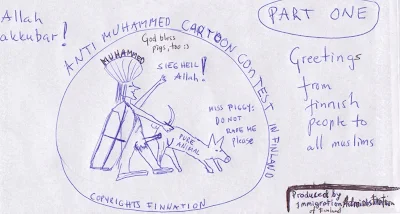 Allah
akkubar!
ANTI MUHAMMED CARTOON CONTEST IN FINLAND
God bless
pigs, too is
MUHAMMED
SIEGHEIL
Allah!
MISS PIGGY:
DO NOT
RAPE ME
please
PURE
ANIMAL
COPYRIGHTS FINNATION
PART ONE
Greetings
from
finnish
people to
all muslims
Produced by
Immigration Administration
of Finland